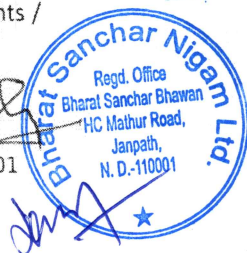 nts /
Bharat Sanchar Nigam Ltd.
Regd. Office
Bharat Sanchar Bhawan
HC Mathur Road,
Janpath,
N. D.-110001
01